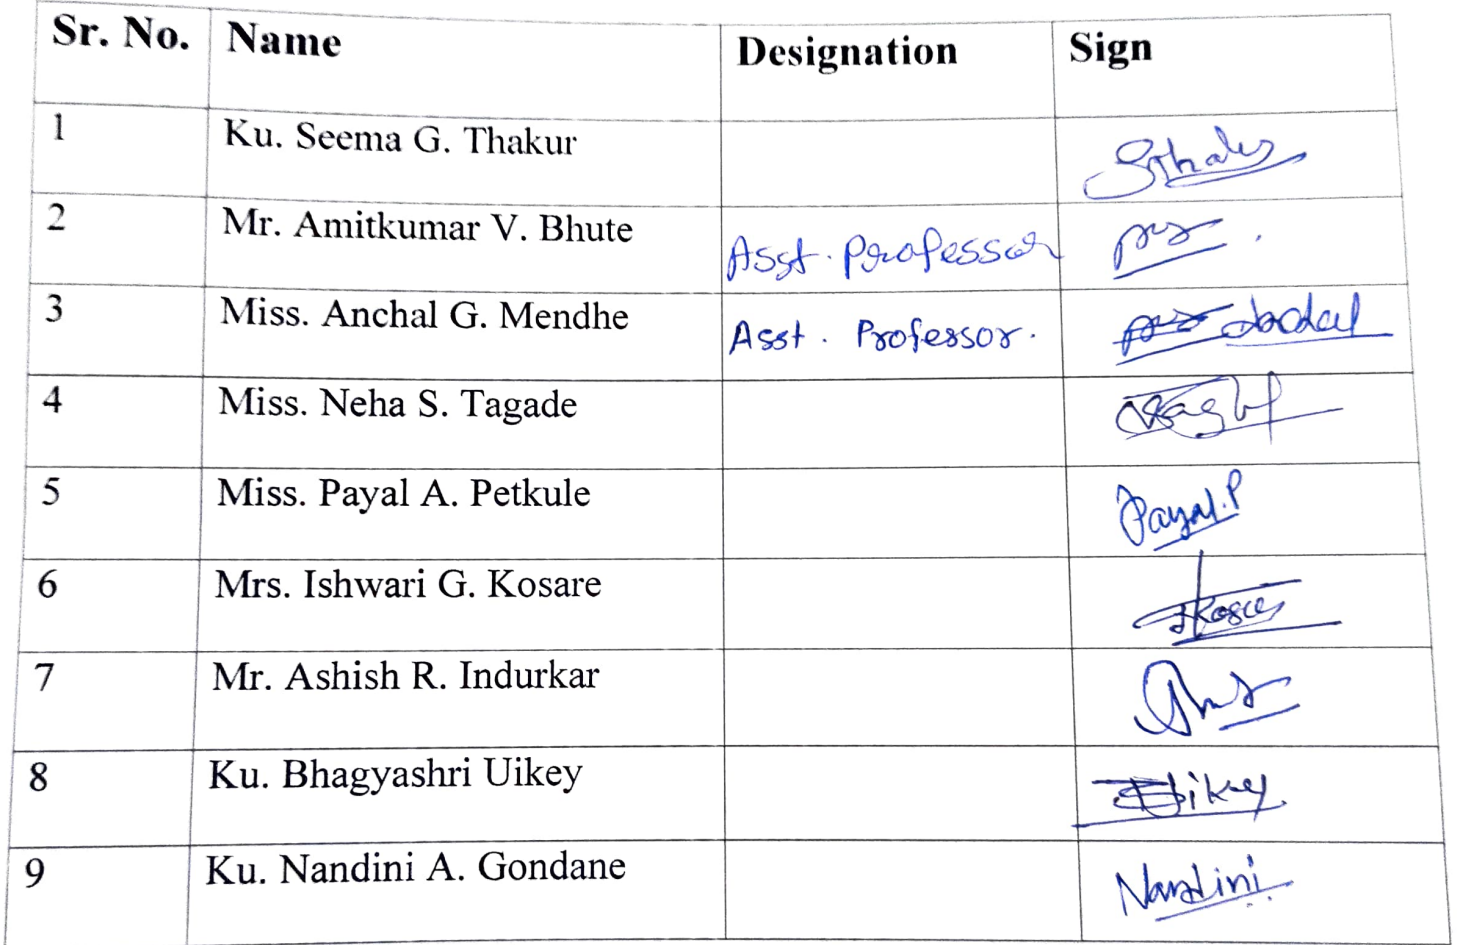 Sr. No. Name Designation Sign
1 Ku. Seema G. Thakur
2 Mr. Amitkumar V. Bhute Asst. Professor
3 Miss. Anchal G. Mendhe Asst. Professor.
4 Miss. Neha S. Tagade
5 Miss. Payal A. Petkule Payal.P
6 Mrs. Ishwari G. Kosare
7 Mr. Ashish R. Indurkar
8 Ku. Bhagyashri Uikey
9 Ku. Nandini A. Gondane Nandini